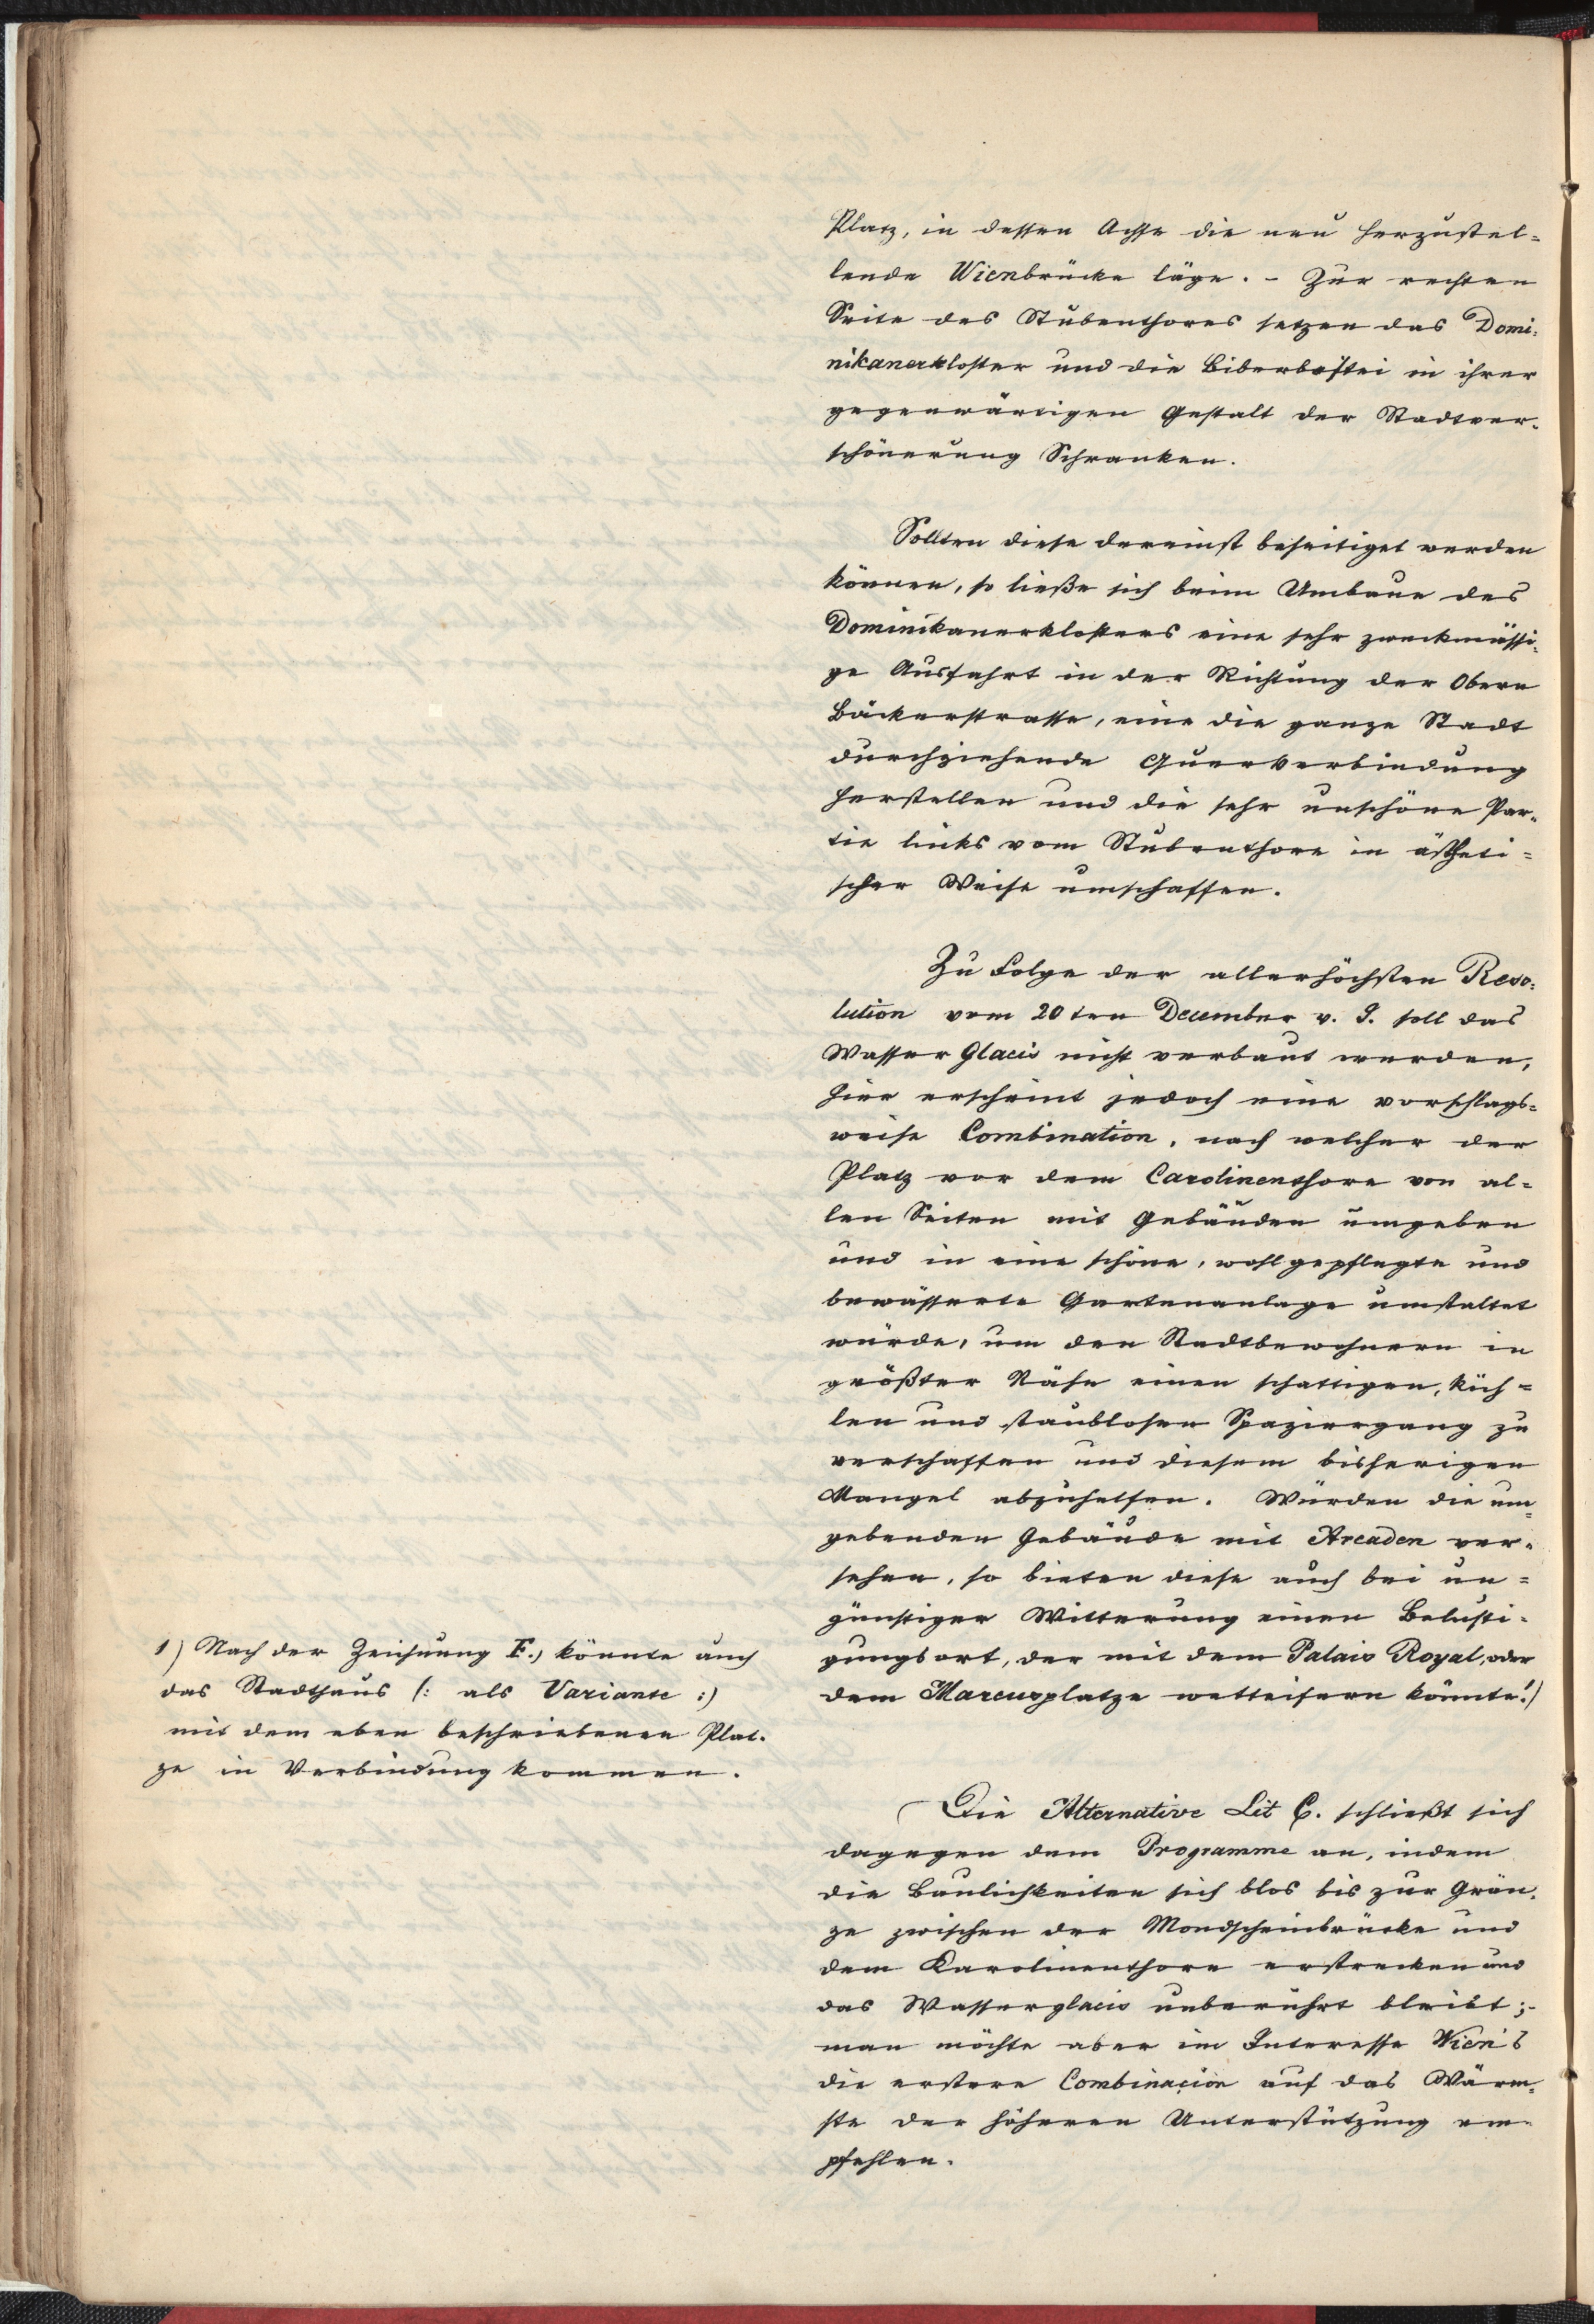 Platz, in dessen Achse die neu herzustel=
lende Wienbrücke läge. - Zur rechten
Seite des Stubenthores setzen das Domi=
nikanerkloster und die Biberbastei in ihrer
gegenwärtigen Gestalt der Stadtver=
schönerung Schranken.
Sollten diese dereinst beseitiget werden
können, so ließe sich beim Umbaue des
Dominikanerklosters eine sehr zweckmässi=
ge Ausfahrt in der Richtung der Obern
Bäckerstrasse, eine die ganze Stadt
durchziehende Querverbindung
herstellen und die sehr unschöne Par=
tie links vom Stubenthore in ästheti=
scher Weise umschaffen.
Zu Folge der allerhöchsten Reso=
lution vom 20ten December v. J. soll das
Wasser Glacis nicht verbaut werden,
hier erscheint jedoch eine vorschlags=
weise Combination, nach welcher der
Platz vor dem Carolinenthore von al=
len Seiten mit Gebäuden umgeben
und in eine schöne, wohlgepflegte und
bewässerte Gartenanlage umstaltet
würde, um den Stadtbewohnern in
größter Nähe einen schattigen, küh=
len und staublosen Spaziergang zu
verschaffen und diesem bisherigen
Mangel abzuhelfen. Würden die um=
gebenden Gebäude mit Arcaden ver=
sehen, so bieten diese auch bei un=
günstiger Witterung einen Belusti=
gungsort, der mit dem Palais Royal, oder
dem Marcusplatze wetteifern könnte. 1)
1) Nach der Zeichnung F., könnte auch
das Stadthaus (: als Variante :)
mit dem eben beschriebenen Plat=
ze in Verbindung kommen.
Die Alternative Lit C. schließt sich
dagegen dem Programme an, indem
die Baulichkeiten sich blos bis zur Grän=
ze zwischen der Mondscheinbrücke und
dem Karolinenthore erstrecken und
das Wasserglacis unberührt bleibt;-
man möchte aber im Interesse Wien's
die erstere Combination auf das Wärm=
ste der höheren Unterstützung em=
pfehlen.